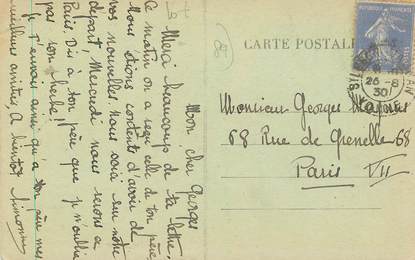 Mon cher Georges
Merci beaucoup de ta lettre.
Ce matin on a reçu celle de ton père
Nous étions contents d'avoir de
vos nouvelles. nous voici sur notre
départ Mercredi nous serons a
Paris. Dis à ton père que je n'oublie
pas son
Je t'envoie ainsi qu'a ton père mes
meilleures amitiés A bientôt Simonne
CARTE POSTALE
26-8
30
Monsieur Georges
68 Rue de Grenelle 68
Paris VII